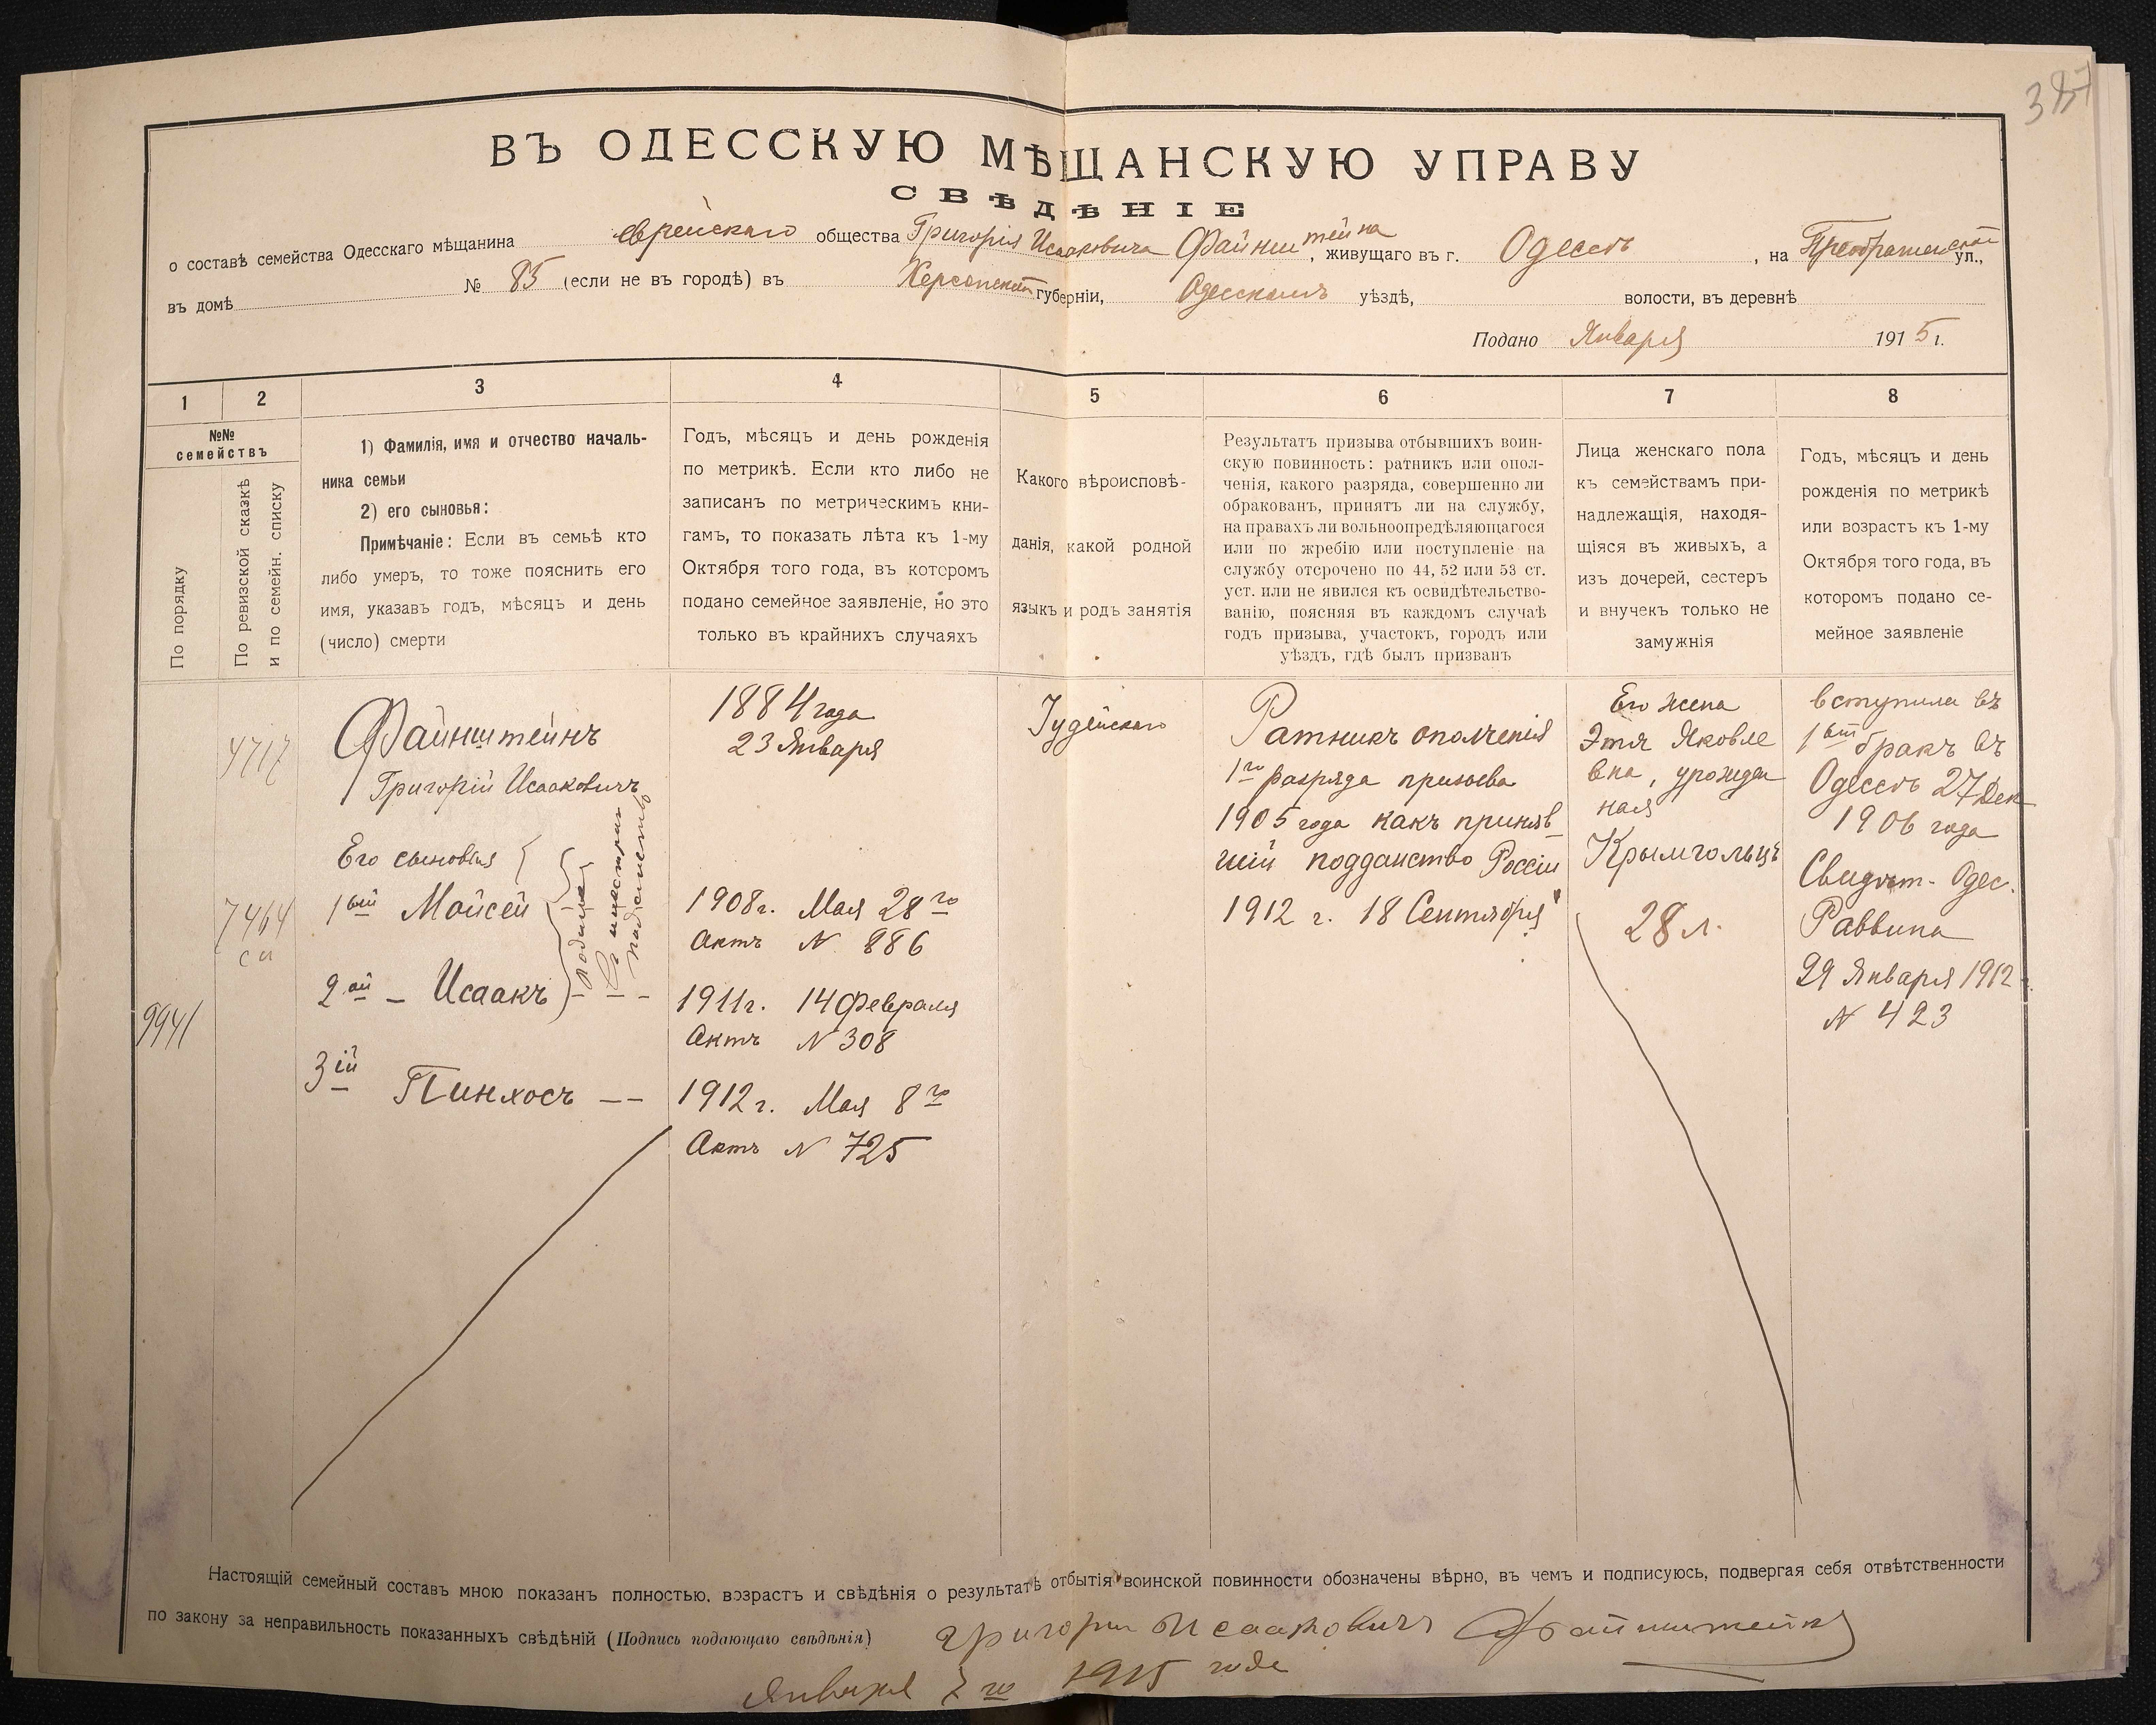 387
ВЪ ОДЕССКУЮ МѢЩАНСКУЮ УПРАВУ
СВѢДѢНІЕ
о составѣ семейства Одесскаго мѣщанина еврейскаго общества Григорія Исааковича Файнштейна, живущаго въ г. Одессѣ, на Преображенской ул.,
въ домѣ № 85 (если не въ городѣ) въ Херсонской губерніи, Одесскомъ уѣздѣ, волости, въ деревнѣ
Подано Января 1915 г.
1 2 3 4 5 6 7 8
№№
семействъ
По порядку
По ревизской сказкѣ
и по семейн. списку
1) Фамилія, имя и отчество началь-
ника семьи
2) его сыновья:
Примѣчаніе: Если въ семьѣ кто
либо умеръ, то тоже пояснить его
имя, указавъ годъ, мѣсяцъ и день
(число) смерти
Годъ, мѣсяцъ и день рожденія
по метрикѣ. Если кто либо не
записанъ по метрическимъ кни-
гамъ, то показать лѣта къ 1-му
Октября того года, въ которомъ
подано семейное заявленіе, но это
только въ крайнихъ случаяхъ
Какого вѣроисповѣ-
данія, какой родной
языкъ и родъ занятія
Результатъ призыва отбывшихъ воин-
скую повинность: ратникъ или опол-
ченія, какого разряда, совершенно ли
обракованъ, принятъ ли на службу,
на правахъ ли вольноопредѣляющагося
или по жребію или поступленіе на
службу отсрочено по 44, 52 или 53 ст.
уст. или не явился къ освидѣтельство-
ванію, поясняя въ каждомъ случаѣ
годъ призыва, участокъ, городъ или
уѣздъ, гдѣ былъ призванъ
Лица женскаго пола
къ семействамъ при-
надлежащія, находя-
щіяся въ живыхъ, а
изъ дочерей, сестеръ
и внучекъ только не
замужнія
Годъ, мѣсяцъ и день
рожденія по метрикѣ
или возрастъ къ 1-му
Октября того года, въ
которомъ подано се-
мейное заявленіе
9941
4717
7464
сп
Файнштейнъ
Григорій Исааковичъ
Его сыновья
1ый Мойсей
2ой – Исаакъ
3ій Пинхосъ
родились
въ иностран
подданство
1884 года
23 Января
1908 г. Мая 28го
Актъ N 886
1911 г. 14 Февраля
Актъ N 308
1912 г. Мая 8го
Актъ N 725
Іудейскаго
Ратникъ ополченія
1го разряда призыва
1905 года какъ приняв
шій подданство Россіи
1912 г. 18 Сентября
Его жена
Этя Яковле
вна, урожден
ная
Крымгольцъ
28 л.
вступила въ
1ый бракъ въ
Одессѣ 27 Дек
1906 года
Свидѣт. Одес.
Раввина
29 Января 1912 г.
N 423
Настоящій семейный составъ мною показанъ полностью, возрастъ и свѣдѣнія о результатѣ отбытія воинской повинности обозначены вѣрно, въ чемъ и подписуюсь, подвергая себя отвѣтственности
по закону за неправильность показанныхъ свѣдѣній (Подпись подающаго свѣдѣнія) Григори Исааковичъ Файнштейнъ
Января 7го 1915 года